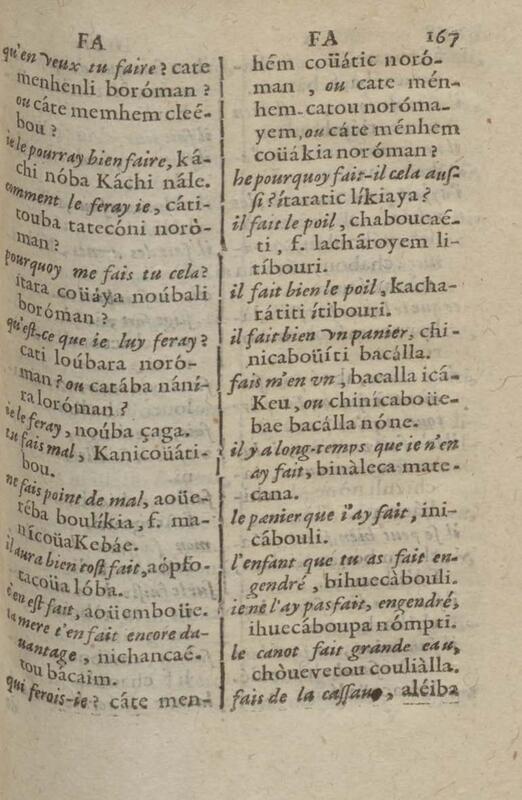 FA
FA 167
qu'en veux tu faire? cate
menhenli boróman?
ou cáte memhem cleé-
bou?
ie le pourray bien faire, ká-
chi nóba Káchi nále.
comment le feray ie, cáti-
touba tatecóni norò-
man?
pourquoy me fais tu cela?
ítara coüáya noúbali
boróman?
qu'est-ce que ie luy feray?
cati loúbara noró-
man? ou catába náni-
ra loróman?
ie le feray, noúba çaga.
tu fais mal, Kanicoüáti-
bou.
ne fais point de mal, aoüe-
réba boulíkia, f. ma-
nícoüaKebáe.
il aura bien tost fait, aópfo-
tacoüa lóba.
c'en est fait, aoüemboüe.
ta mere t'en fait encore da-
uantage, nichancaé.
tou bácaim.
qui ferois-ie? cáte men-
hém coüátic noró-
man, ou cate mén-
hem-catou noróma-
yem, ou cáte ménhem
coüákia noróman?
he pourquoy fait-il cela aus-
si? ítaratic líkiaya?
il fait le poil, chaboucaé-
ti, f. lachâroyem li-
tíbouri.
il fait bien le poil, kacha-
rátiti ítibouri.
il fait bien vn panier, chi-
nicaboüíti bacálla.
fais m'en vn, bacalla icá-
Keu, ou chinícaboüe-
bae bacálla nóne.
il y a long-temps que ie n'en
ay fait, binàleca mate-
cana.
le panier que i'ay fait, iní-
cábouli.
l'enfant que tu as fait en-
gendré, bihuecàbouli.
ie ne l'ay pas fait, engendré,
ihuecáboupa nómpti.
le canot fait grande eau,
chòuevetou couliàlla.
fais de la cassaue, aléiba